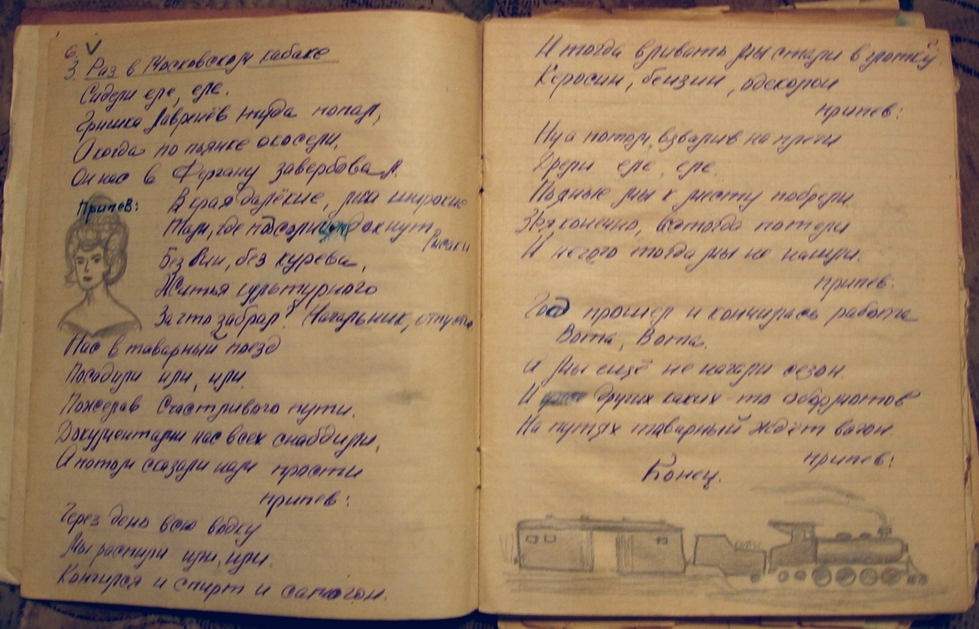 6. V
3. Раз в Московском кабаке
Сидели еле, еле.
Гришка Лавренёв туда попал,
А когда по пьянке окосели,
Он нас в Фергану завербовал.
Припев: В края далёкие, да широкие
Там, где подсолнух дохнут
Без вин, без курева,
Житья культурного
За что забрал? Начальник, отпусти
Нас в таварный поезд
Посадили или, или.
Пожелав счастливого пути.
Документами нас всех снабдили,
А потом сказали нам прости
припев:
Через день всю водку
Мы распили или, или.
Кончился и спирт и самогон.
И тогда вливать мы стали в глотку
Керосин, бензин, одеколон
припев:
Ну а потом, взвалив на плечи
Дрели еле, еле.
Пьяные мы к месту побрели
Зря конечно,
И чего тогда мы не нашли.
припев:
Год прошёл и кончилась работа
Вота, Вота.
А мы ещё не начали сезон.
И других каких то обормотов
На путях таварный ждёт вагон
припев:
Конец.